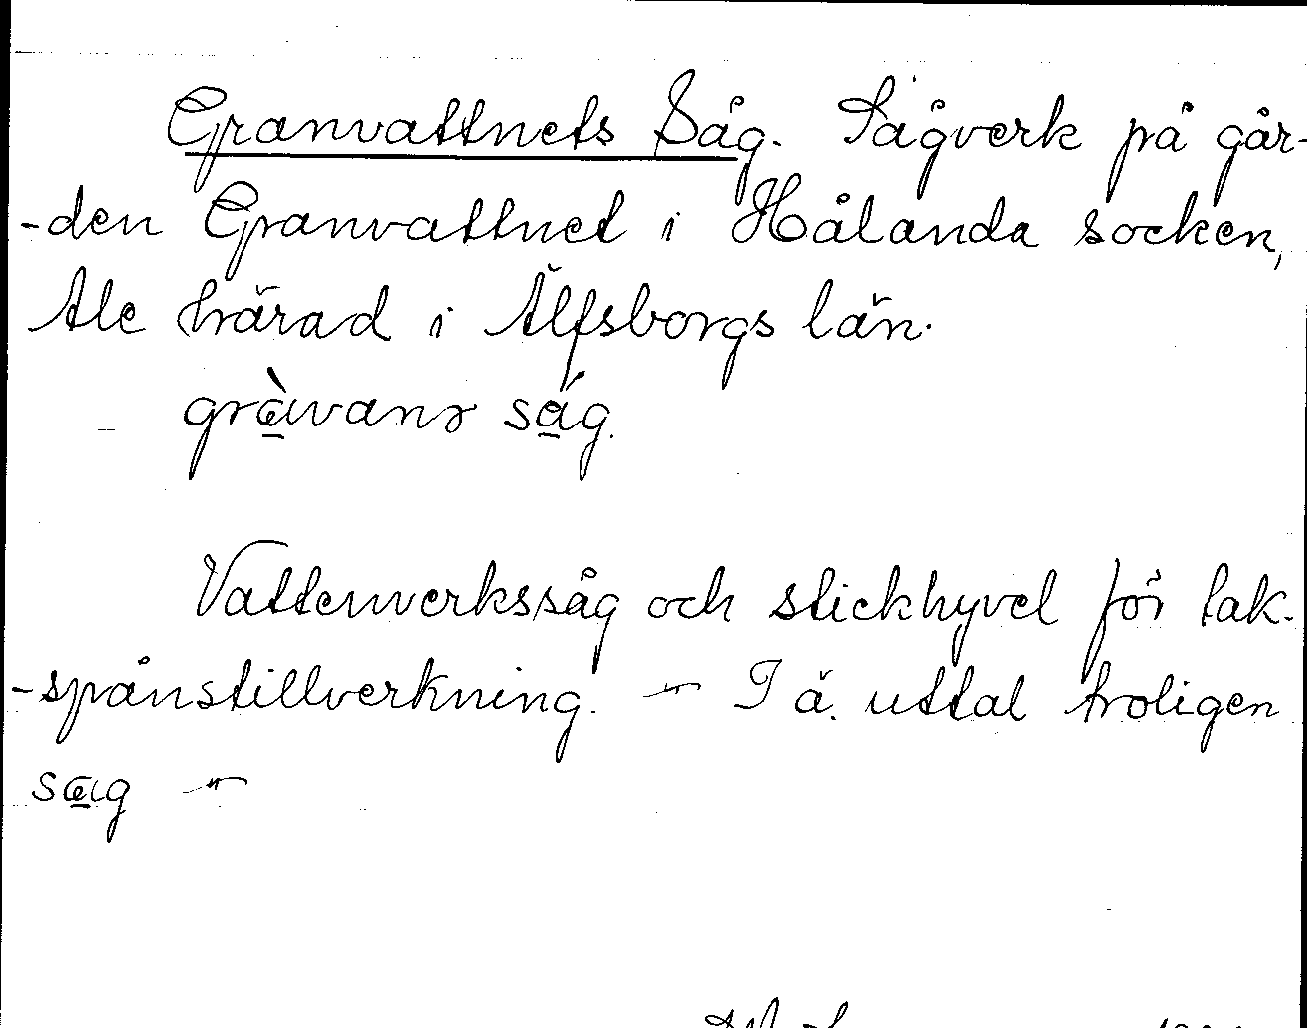 Granvattnets Såg. Sågverk på går-
-den Granvattnet i Hålanda socken,
Ale härad i Älfsborgs län.
gràvanr ság.
Vattenverkssåg och stickhyvel för tak-
-spånstillverkning. — I ä. uttal troligen
sag —